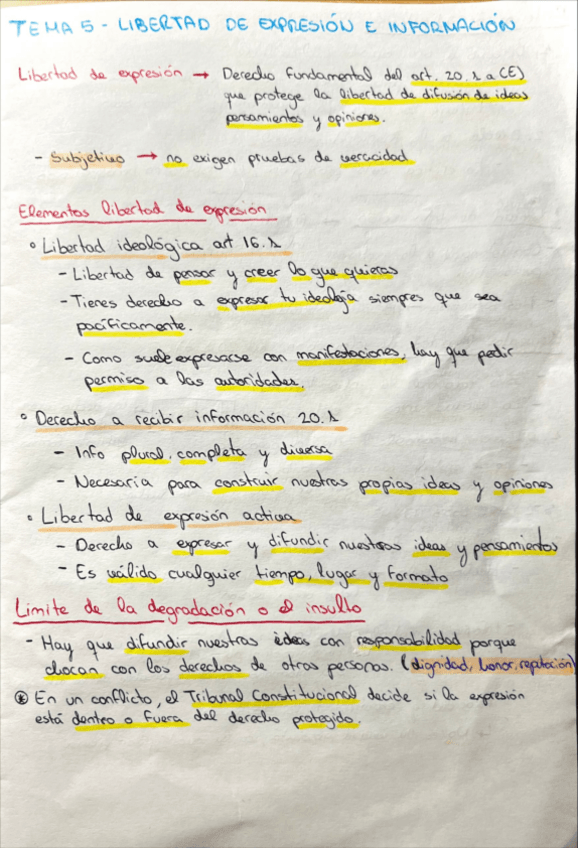 TEMA 5 - LIBERTAD DE EXPRESIÓN E INFORMACIÓN
Libertad de expresión → Derecho fundamental del art. 20.1 a CE)
que protege la libertad de difusión de ideas
pensamientos y opiniones.
- Subjetivo → no exigen pruebas de veracidad
Elementos libertad de expresión
° Libertad ideológica art 16.1
- Libertad de pensar y creer lo que quieras
- Tienes derecho a expresar tu ideología siempres que sea
pacíficamente.
- Como suele expresarse con manifestaciones, hay que pedir
permiso a las autoridades.
° Derecho a recibir información 20.1
- Info plural, completa y diversa
- Necesaria para construir nuestras propias ideas y opiniones
° Libertad de expresión activa
- Derecho a expresar y difundir nuestras ideas y pensamientos
- Es válido cualquier tiempo, lugar y formato
Limite de la degradación o el insulto
- Hay que difundir nuestras ideas con responsabilidad porque
chocan con los derechos de otras personas. (dignidad, honor, reputación)
⊛ En un conflicto, el Tribunal Constitucional decide si la expresión
está dentro o fuera del derecho protegido.